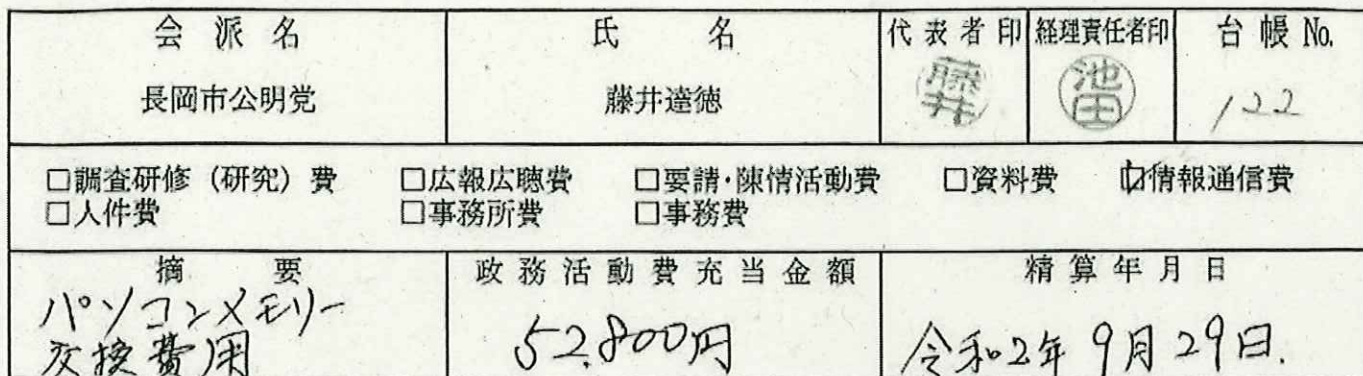 会派名 氏名 代表者印 経理責任者印 台帳No.
長岡市公明党 藤井達徳 藤井 池田 122
□調査研修（研究）費 □広報広聴費 □要請・陳情活動費 □資料費 ☑情報通信費
□人件費 □事務所費 □事務費
摘要 政務活動費充当金額 精算年月日
パソコンメモリー
交換費用 52,800円 令和2年9月29日.